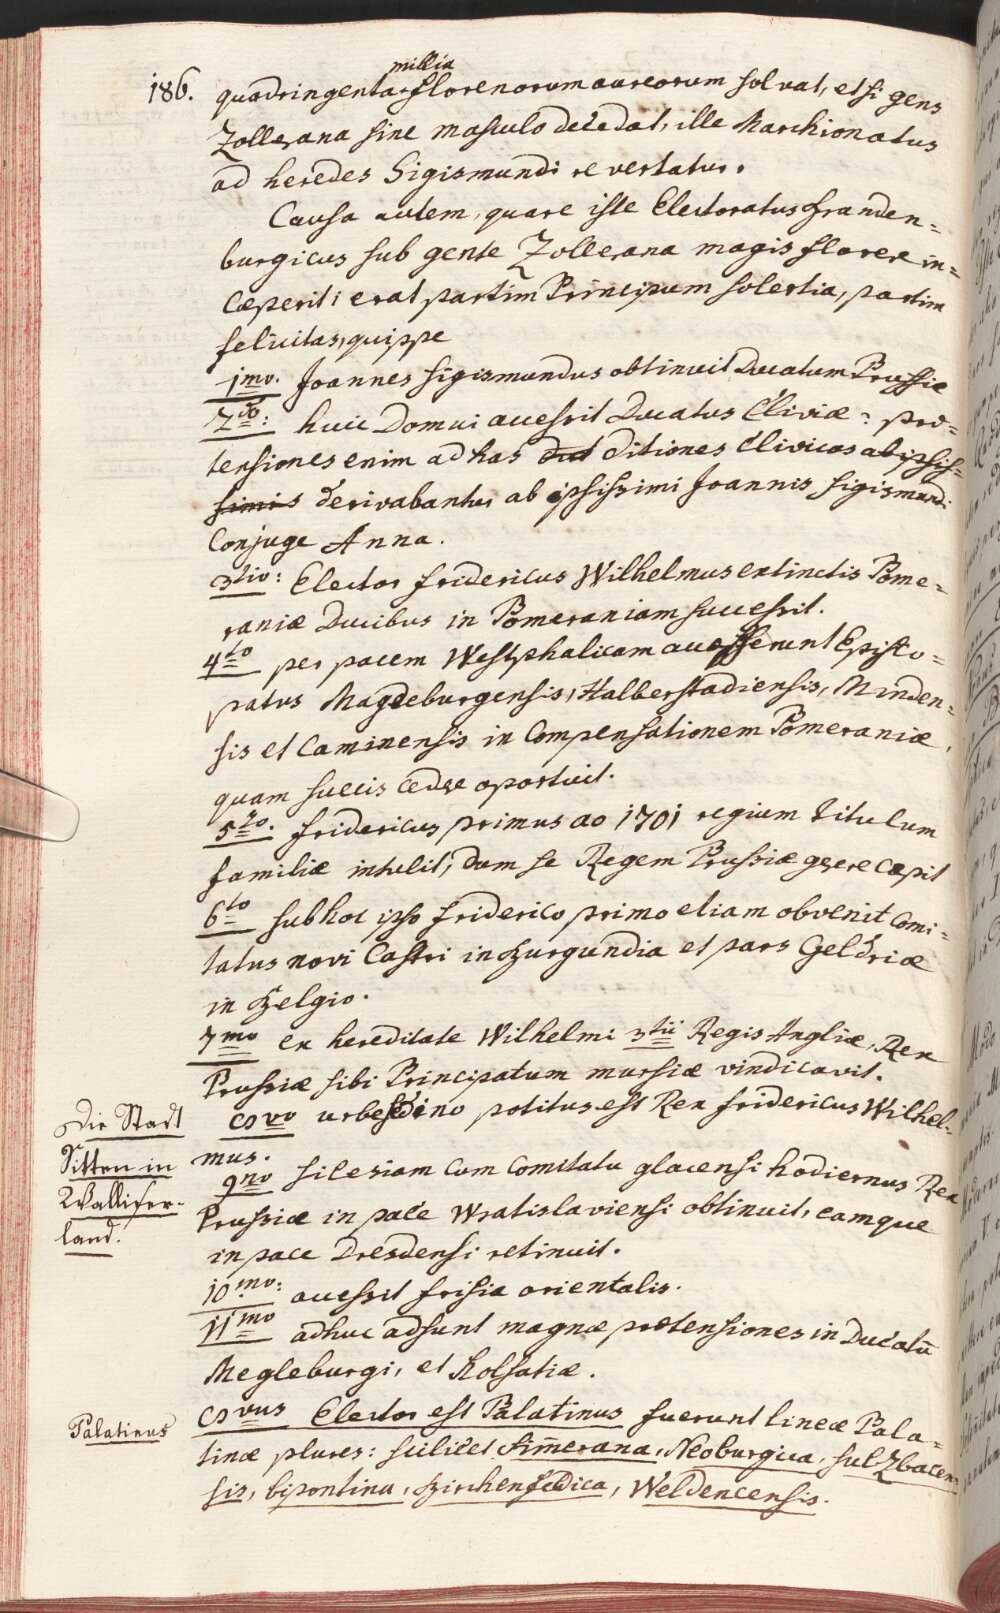 186. quadringenta millia florenorum aureorum solvat, et si gens
Zollerana sine masculo decedat, ille Marchionatus
ad heredes Sigismundi revertatur.
Causa autem, quare iste Electoratus Branden=
burgicus sub gente Zollerana magis florere in=
cæperit; erat partim Principum solertia, partim
felicitas, quippe
1mo. Joannes Sigismundus obtinuit Ducatum Prussiæ
2do: huic Domui accessit Ducatus Cliviæ: præ=
tensiones enim ad has dut ditiones Clivicas ab ipsis=
simis derivabantur ab ipsissimi Joannis Sigismundi
Conjuge Anna.
3tio: Elector Fridericus Wilhelmus extinctis Pome=
raniæ Ducibus in Pomeraniam successit.
4to per pacem Westphalicam accesserunt Episco=
patus Magdeburgensis, Halberstadiensis, Minden=
sis et Caminensis in Compensationem Pomeraniæ,
quam suecis cedere oportuit.
5to. Fridericus primus ao 1701 regium titulum
familiæ intulit, dum se Regem Prussiæ gerere cæpit
6to sub hoc ipso Friderico primo etiam obvenit Comi=
tatus novi Castri in Burgundia et pars Geldriæ
in Belgio.
7mo ex hereditate Wilhelmi 3tii Regis Angliæ, Rex
Prussiæ sibi Principatum mursiæ vindicavit.
8vo urbe Sedino potitus est Rex Fridericus Wilhel=
mus.
Die Stadt
Sitten in
Walliser-
land.
9no Silesiam cum Comitatu glacensi hodiernus Rex
Prussiæ in pace Wratislaviensi obtinuit, eamque
in pace Dresdensi retinuit.
10mo: accessit Frisia orientalis.
11mo adhuc adsunt magnæ prætensiones in Ducatū
Megleburgi, et Holsatiæ.
Palatinus
8vus Elector est Palatinus fuerunt lineæ Pala=
tinæ plures: scilicet Sim̄erana, Neoburgica, Sulzbacen=
sis, bipontina, Birckenfeldica, Weldencensis.